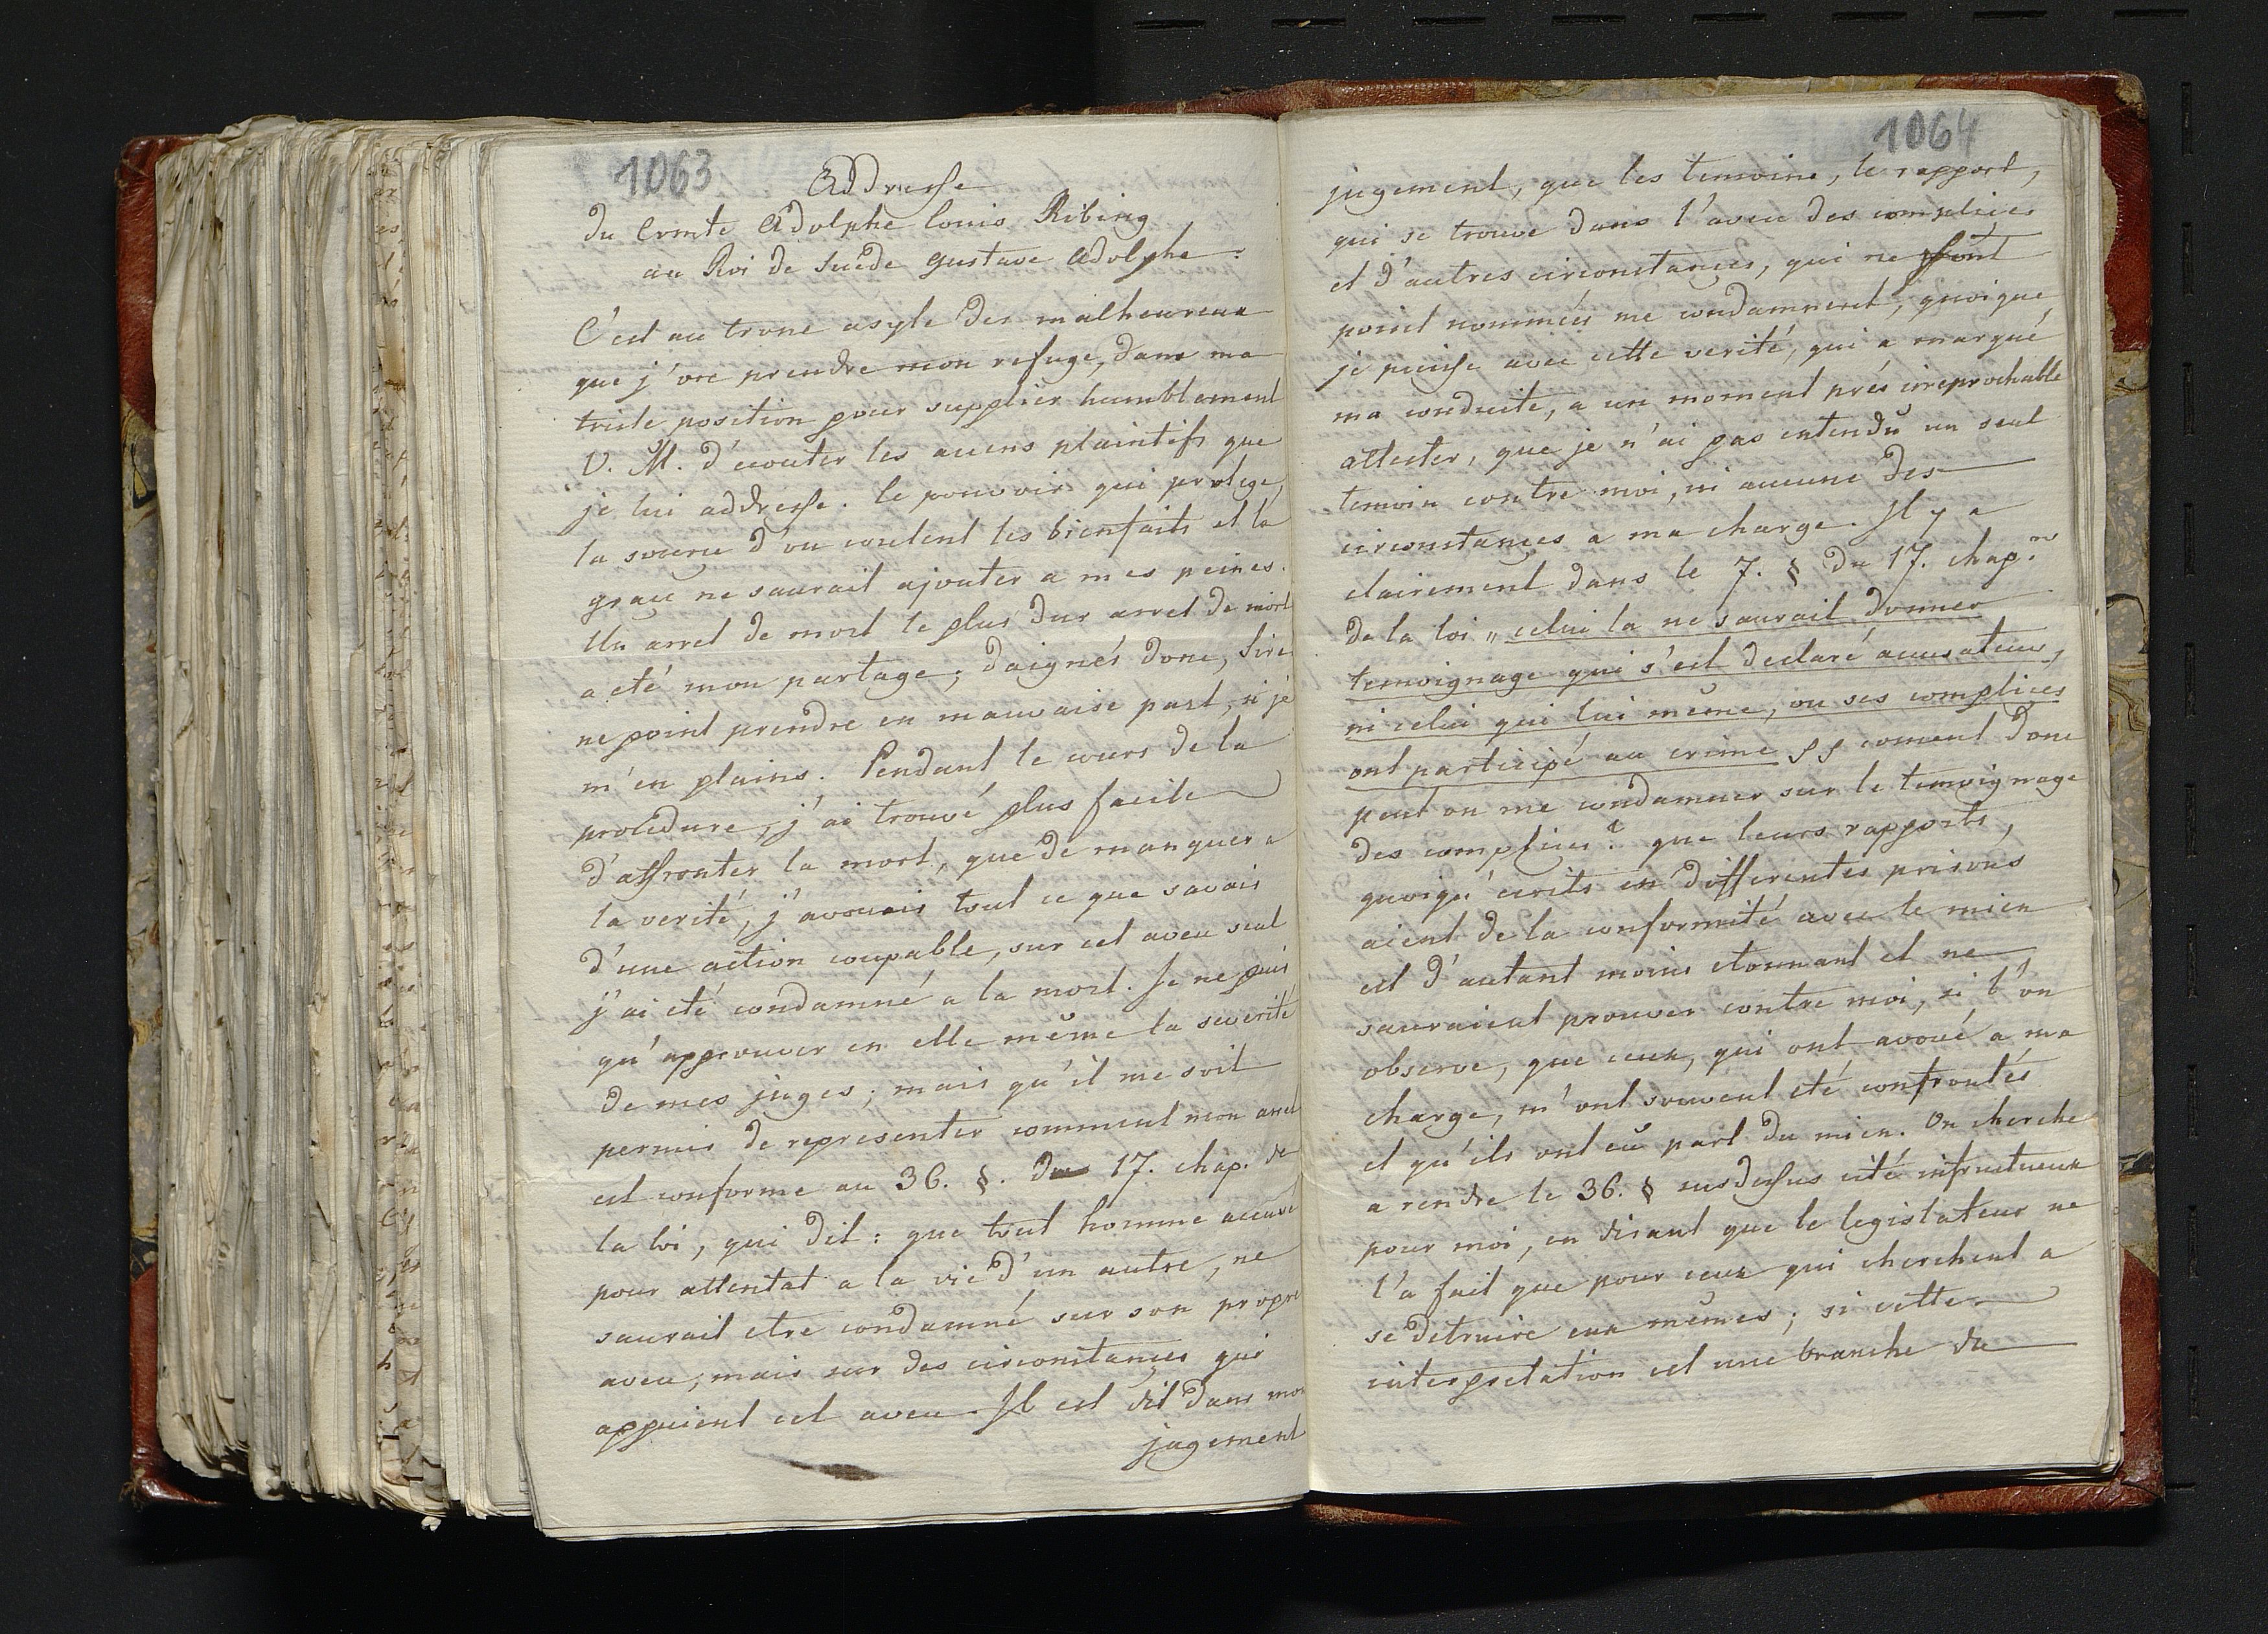 1063
Addresse
du Comte Adolphe Louis Ribing
au Roi de Suède Gustave Adolphe.
C'est au trone asyle des malheureux
que j'ose prendre mon refuge, dans ma
triste position pour supplier humblement
V. M. d'ecouter les accens plaintifs que
je lui addresse. Le pouvoir qui protege,
la source d'ou coulent les bienfaits et la
grace ne saurait ajouter a mes peines.
Un arret de mort le plus dur arret de mort
a eté mon partage; daignés donc, Sire
ne point prendre en mauvaise part, si je
m'en plains. Pendant le cours de la
procedure, j'ai trouvé plus facile
d'affronter la mort, que de manquer a
la verité, j'avouais tout ce que savais
d'une action coupable, sur cet aveu seul
j'ai eté condamné a la mort. Je ne puis
qu'approuver en elle même la severité
de mes juges; mais qu'il me soit
permis de representer comment mon arret
est conforme au 36. §. du 17. chap. de
la loi, qui dit: que tout homme accusé
pour attentat a la vie d'un autre, ne
saurait etre condamné sur son propre
aveu, mais sur des circonstances qui
appuient cet aveu. Il est dit dans mon
jugement
1064
jugement, que les temoins, le rapport,
qui se trouve dans l'aveu des complices
et d'autres circonstances, qui ne sont
point nommées me condamnent, quoique
je puisse avec cette verité, qui a marqué
ma conduite, a un moment prés irreprochable
attester, que je n'ai pas entendû un seul
temoin contre moi, ni aucune des
circonstances à ma charge. Il y a
clairement dans le 7. § du 17. chap.
de la loi „ celui la ne saurait donner
temoignage qui s'est declaré accusateur,
ni celui qui lui même, ou ses complices
ont participé au crime ss coment donc
peut on me condamner sur le temoignage
des complices? que leurs rapports,
quoiqu'ecrits en differentes prisons
aient de la conformité avec le mien
est d'autant moins etonnant et ne
sauraient prouver contre moi, si l'on
observe, que ceux, qui ont avoué a ma
charge, m'ont souvent eté confrontés
et qu'ils ont eû part du mien. On cherche
a rendre le 36. § susdessus cité infructueux
pour moi, en disant que le legislateur ne
l'a fait que pour ceux qui cherchent a
se detruire eux mêmes; si cette
interpretation est une branche du